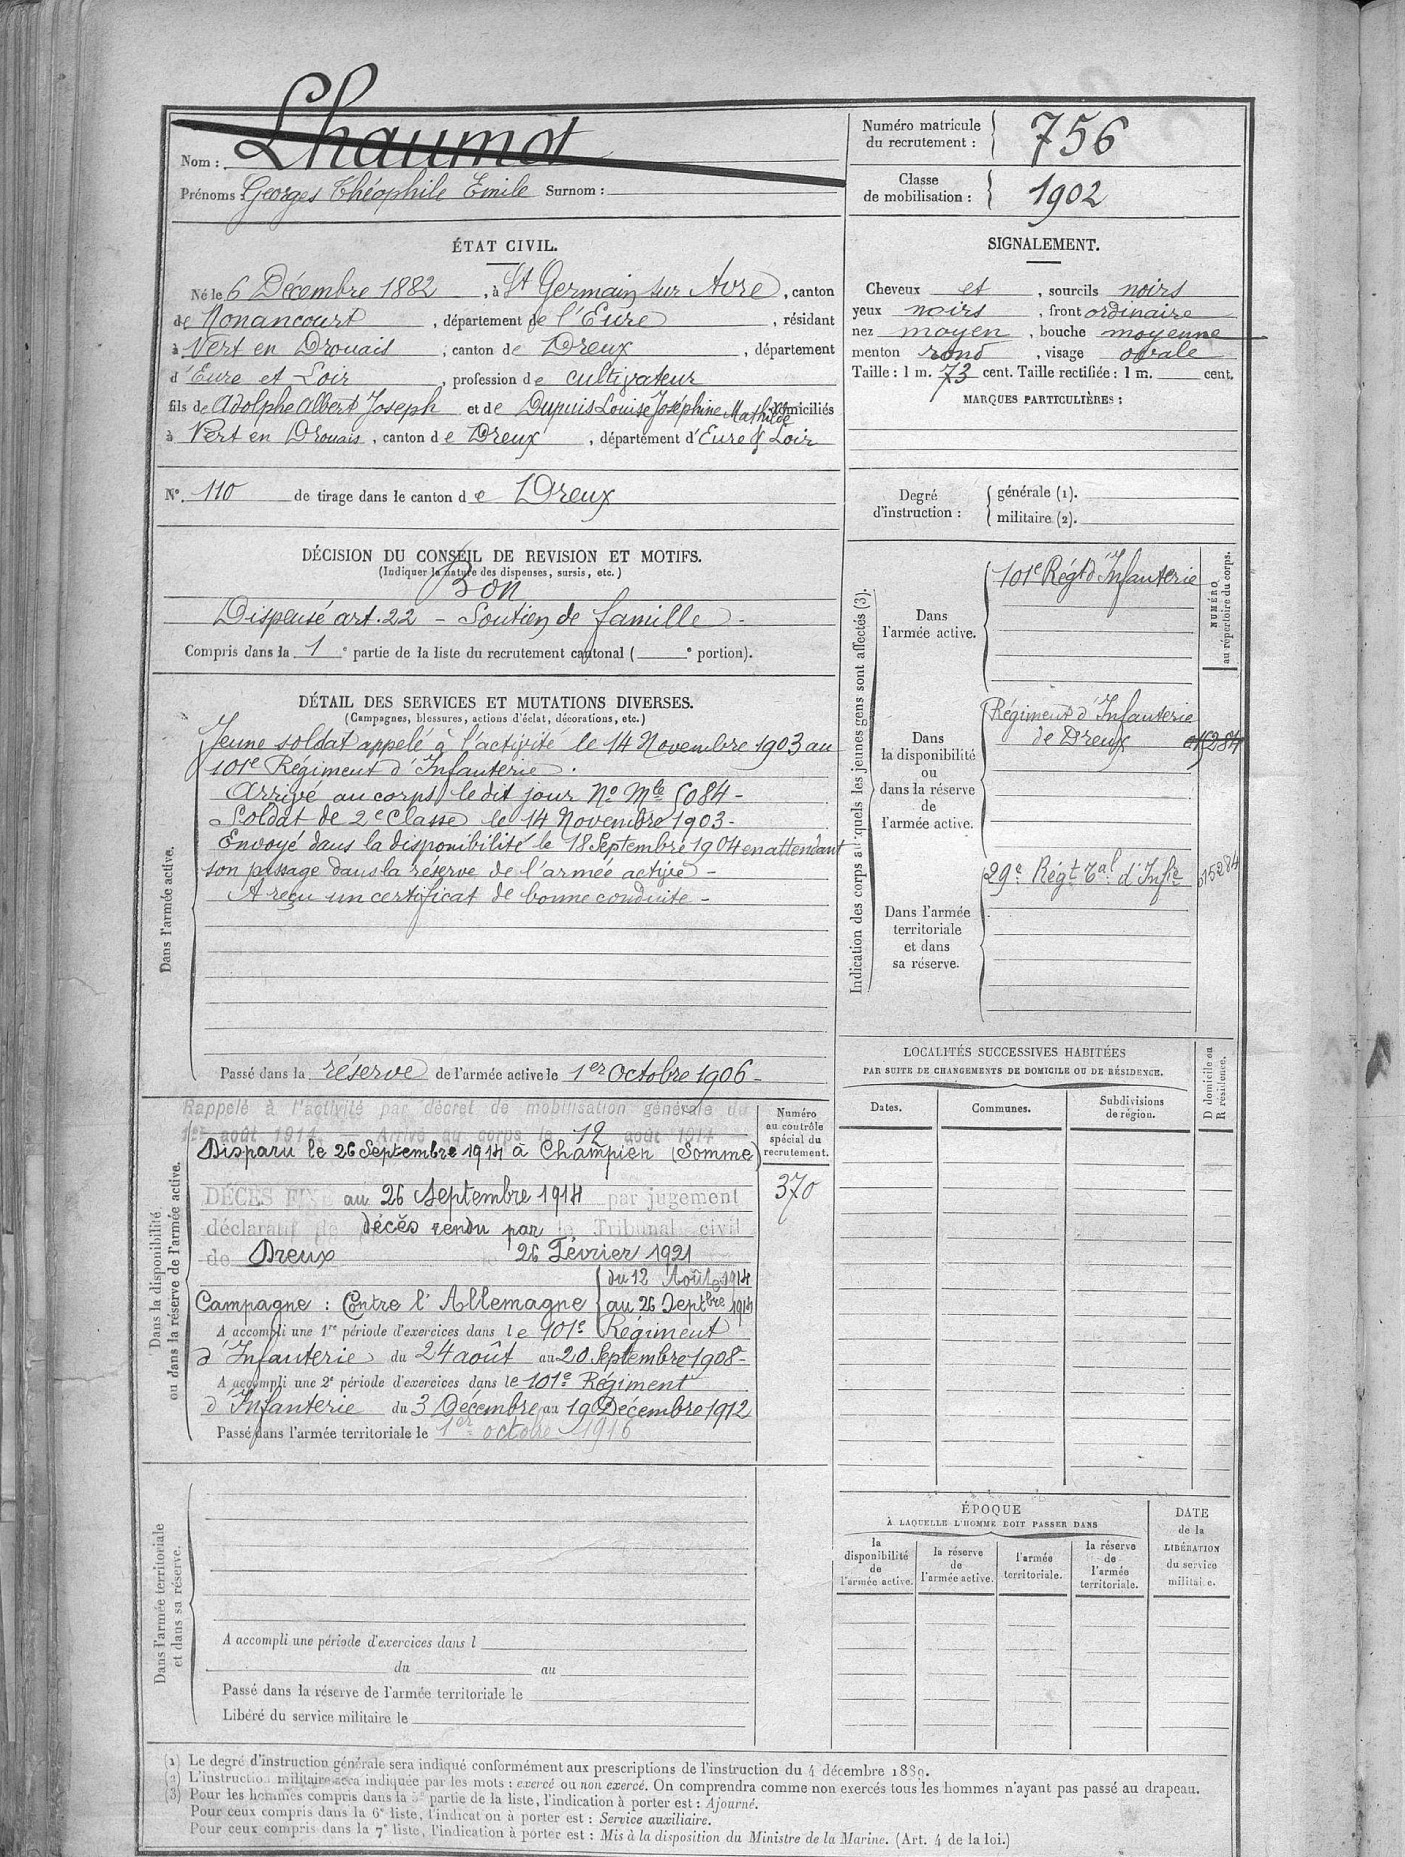 Nom : Lhaumot
Prénoms : Georges Théophile Emile Surnom :
Numéro matricule du recrutement : 756
Classe de mobilisation : 1902
ÉTAT CIVIL.
Né le 6 Décembre 1882, à St Germain sur Avre, canton
de Nonancourt, département de l'Eure, résidant
à Vert en Drouais, canton de Dreux, département
d'Eure et Loir, profession de cultivateur
fils de Adolphe Albert Joseph et de Dupuis Louise Joséphine Mathilde domiciliés
à Vert en Drouais, canton de Dreux, département d'Eure & Loir
N°. 110 de tirage dans le canton de Dreux
SIGNALEMENT.
Cheveux et, sourcils noirs
yeux noirs, front ordinaire
nez moyen, bouche moyenne
menton rond, visage ovale
Taille : 1 m. 73 cent. Taille rectifiée : 1 m. cent.
MARQUES PARTICULIÈRES :
Degré d'instruction :
générale (1).
militaire (2).
DÉCISION DU CONSEIL DE REVISION ET MOTIFS.
(Indiquer la nature des dispenses, sursis, etc.)
Bon
Dispensé art. 22 - Soutien de famille -
Compris dans la 1e partie de la liste du recrutement cantonal ( e portion).
DÉTAIL DES SERVICES ET MUTATIONS DIVERSES.
(Campagnes, blessures, actions d'éclat, décorations, etc.)
Dans l'armée active.
Jeune soldat appelé à l'activité le 14 Novembre 1903 au
101e Régiment d'Infanterie.
Arrivé au corps le dit jour No Mle 5084 -
Soldat de 2e Classe le 14 Novembre 1903 -
Envoyé dans la disponibilité le 18 Septembre 1904 en attendant
son passage dans la réserve de l'armée active -
A reçu un certificat de bonne conduite -
Passé dans la réserve de l'armée active le 1er Octobre 1906 -
Indication des corps auxquels les jeunes gens sont affectés (3).
NUMÉRO au répertoire du corps.
Dans l'armée active.
101e Régt d'Infanterie
Dans la disponibilité ou dans la réserve de l'armée active.
Régiment d'Infanterie
de Dreux
Dans l'armée territoriale et dans sa réserve.
29e Régt Tal d'Infie 015284
Dans la disponibilité ou dans la réserve de l'armée active.
Rappelé à l'activité par décret de mobilisation générale du
1er août 1914. — Arrivé au corps le 12 août 1914
Disparu le 26 Septembre 1914 à Champien (Somme)
DÉCÈS FIXÉ au 26 Septembre 1914 par jugement
déclaratif de décès rendu par le Tribunal civil
de Dreux 26 Février 1921
du 12 Août 1914
Campagne : Contre l'Allemagne au 26 Septbre 1914
A accompli une 1re période d'exercices dans le 101e Régiment
d'Infanterie du 24 août au 20 Septembre 1908 -
A accompli une 2e période d'exercices dans le 101e Régiment
d'Infanterie du 3 Décembre au 19 Décembre 1912
Passé dans l'armée territoriale le 1er octobre 1916
Numéro au contrôle spécial du recrutement.
370
LOCALITÉS SUCCESSIVES HABITÉES
PAR SUITE DE CHANGEMENTS DE DOMICILE OU DE RÉSIDENCE.
D domicile ou R résidence.
Dates. Communes. Subdivisions de région.
Dans l'armée territoriale et dans sa réserve.
A accompli une période d'exercices dans l
du au
Passé dans la réserve de l'armée territoriale le
Libéré du service militaire le
ÉPOQUE
À LAQUELLE L'HOMME DOIT PASSER DANS
la disponibilité de l'armée active.
la réserve de l'armée active.
l'armée territoriale.
la réserve de l'armée territoriale.
DATE de la LIBÉRATION du service militaire.
(1) Le degré d'instruction générale sera indiqué conformément aux prescriptions de l'instruction du 4 décembre 1889.
(2) L'instruction militaire sera indiquée par les mots : exercé ou non exercé. On comprendra comme non exercés tous les hommes n'ayant pas passé au drapeau.
(3) Pour les hommes compris dans la 5e partie de la liste, l'indication à porter est : Ajourné.
Pour ceux compris dans la 6e liste, l'indication à porter est : Service auxiliaire.
Pour ceux compris dans la 7e liste, l'indication à porter est : Mis à la disposition du Ministre de la Marine. (Art. 4 de la loi.)